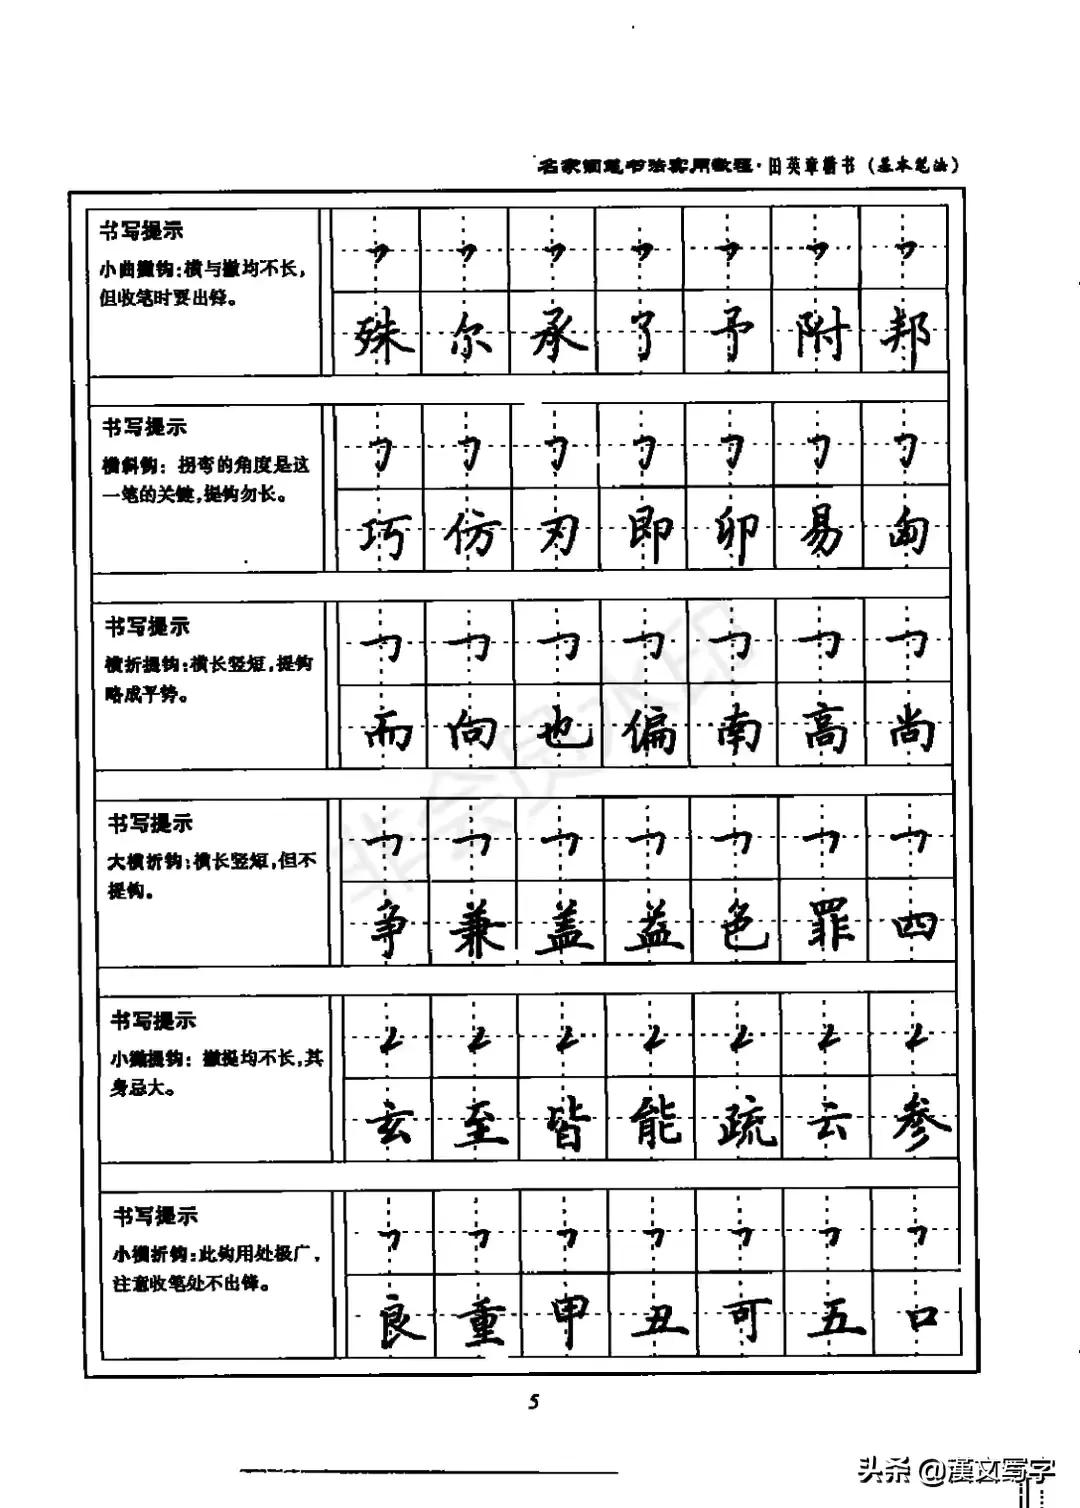 名家钢笔书法实用教程·田英章楷书（基本笔法）
书写提示
小曲撇钩：横与撇均不长，
但收笔时要出锋。
フ フ フ フ フ フ フ
殊 尔 承 了 予 附 邦
书写提示
横斜钩：拐弯的角度是这
一笔的关键，提钩勿长。
㇆ ㇆ ㇆ ㇆ ㇆ ㇆ ㇆
巧 仿 刃 即 卯 易 匈
书写提示
横折提钩：横长竖短，提钩
略成平势。
㇆ ㇆ ㇆ ㇆ ㇆ ㇆ ㇆
而 向 也 偏 南 高 尚
书写提示
大横折钩：横长竖短，但不
提钩。
㇕ ㇕ ㇕ ㇕ ㇕ ㇕ ㇕
争 兼 盖 益 色 罪 四
书写提示
小撇提钩：撇提均不长，其
身忌大。
㇜ ㇜ ㇜ ㇜ ㇜ ㇜ ㇜
玄 至 皆 能 疏 云 参
书写提示
小横折钩：此钩用处极广，
注意收笔处不出锋。
㇕ ㇕ ㇕ ㇕ ㇕ ㇕ ㇕
良 重 甲 丑 可 五 口
非会员水印
5
头条 @漢文写字